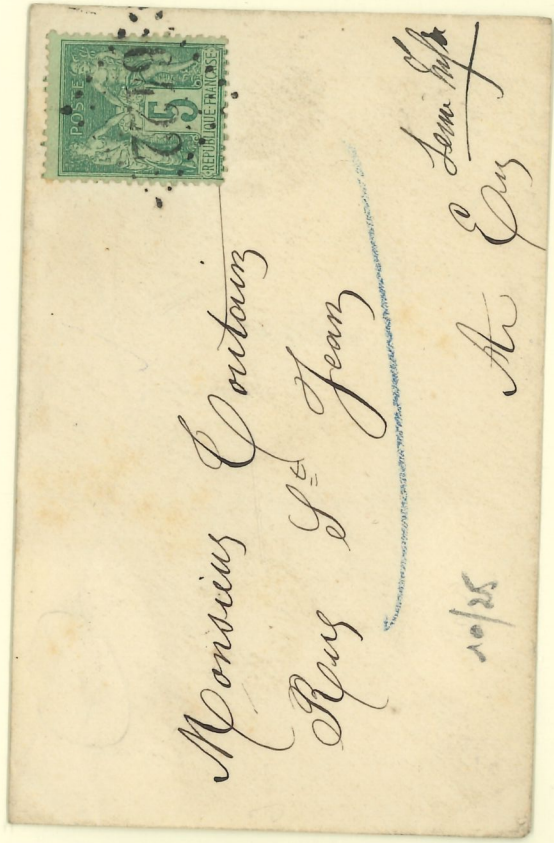 POSTE
5
REPUBLIQUE FRANÇAISE
Monsieur Coutain
Rue St Jean
Au
Eu
10/25